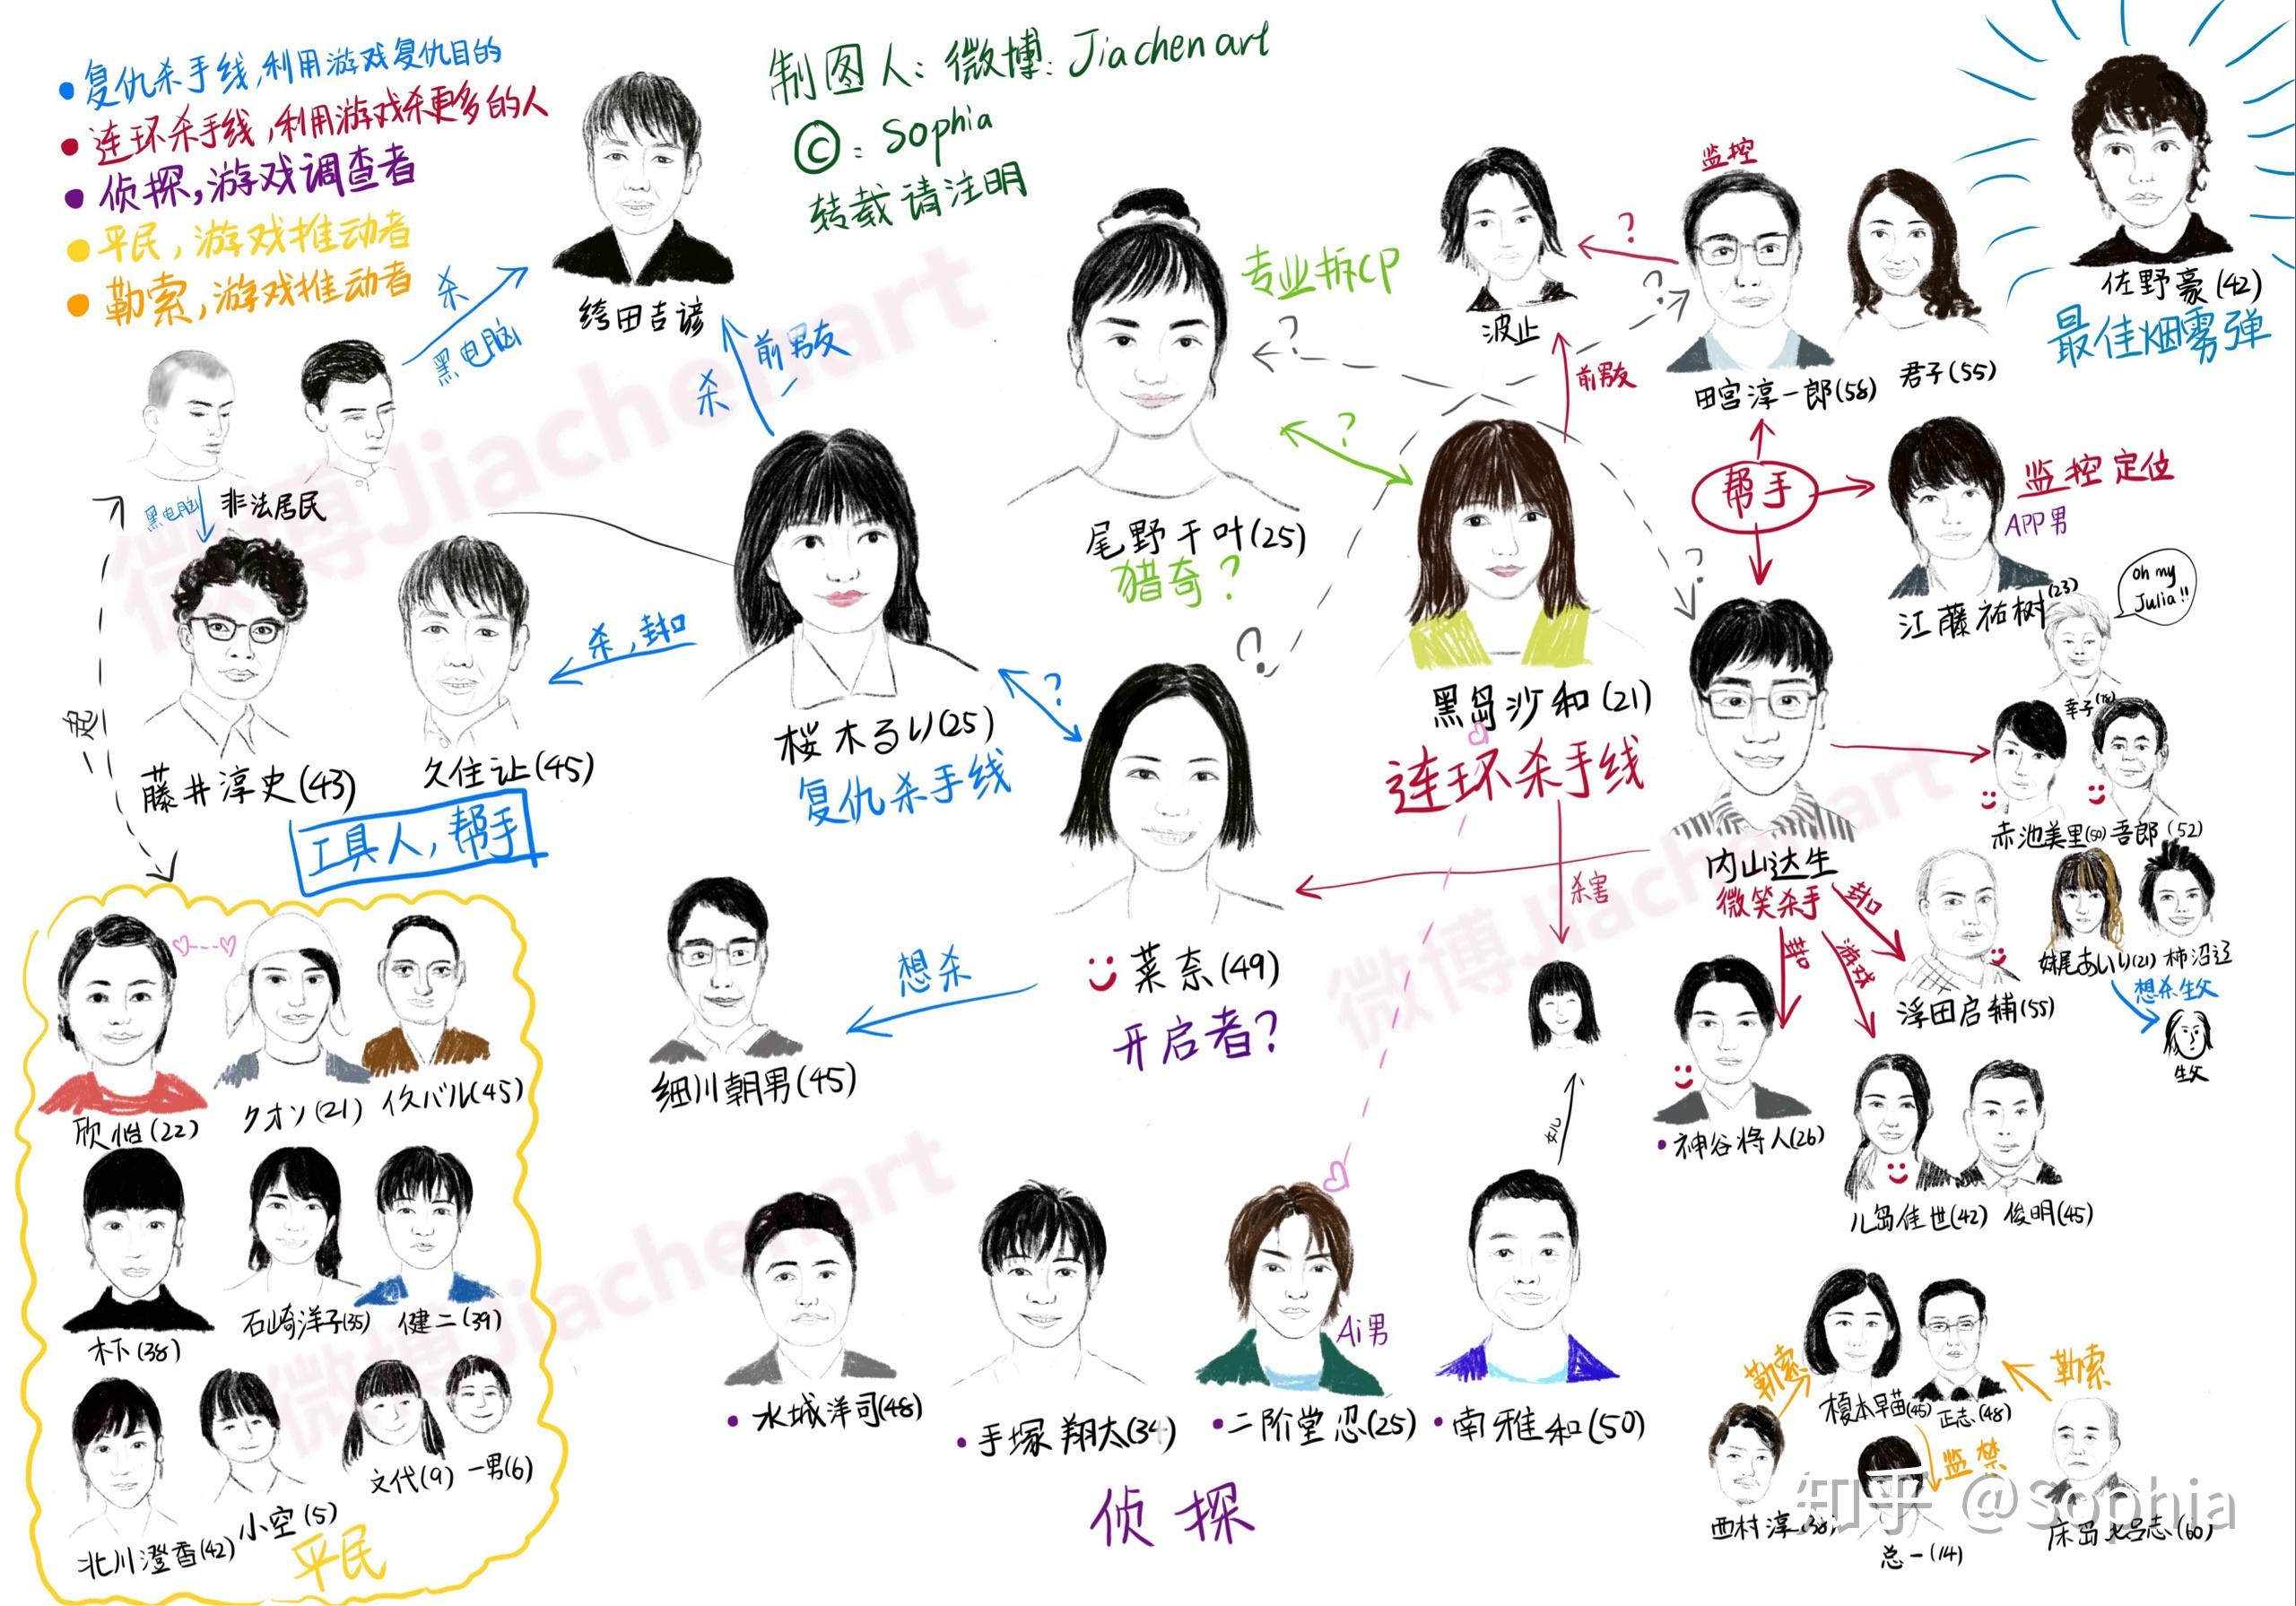 复仇杀手线,利用游戏复仇目的
连环杀手线,利用游戏杀更多的人
侦探,游戏调查者
平民,游戏推动者
勒索,游戏推动者
制图人:微博:Jiachen art
©:Sophia
转载请注明
杀
黑电脑
绔田吉谚
杀
前男友
专业拆CP
?
?
波止
?
监控
?
前男友
田宫淳一郎(58)
君子(55)
佐野豪(42)
最佳烟雾弹
黑电脑
非法居民
一定
藤井淳史(43)
久住让(45)
工具人,帮手
杀,封口
桜木るり(25)
复仇杀手线
?
尾野千叶(25)
猎奇?
?
黑岛沙和(21)
连环杀手线
帮手
监控 定位
APP男
江藤祐树(23)
oh my
Julia!!
幸子(78)
赤池美里(50)
吾郎(52)
?
内山达生
微笑杀手
封口
封口
游戏
浮田启辅(55)
妹尾あいり(21)
柿沼辽
想杀生父
生父
神谷将人(26)
儿岛佳世(42)
俊明(45)
菜奈(49)
开启者?
想杀
细川朝男(45)
杀害
女儿
欣怡(22)
クオン(21)
イクバル(45)
木下(38)
石崎洋子(35)
健二(39)
北川澄香(42)
小空(5)
文代(9)
一男(6)
平民
水城洋司(48)
手塚翔太(34)
二阶堂忍(25)
Ai男
南雅和(50)
侦探
勒索
榎本早苗(45)
正志(48)
勒索
监禁
西村淳(38)
总一(14)
床岛比吕志(60)
知乎 @Sophia
微博Jiachenart
微博Jiachenart
微博Jiachenart